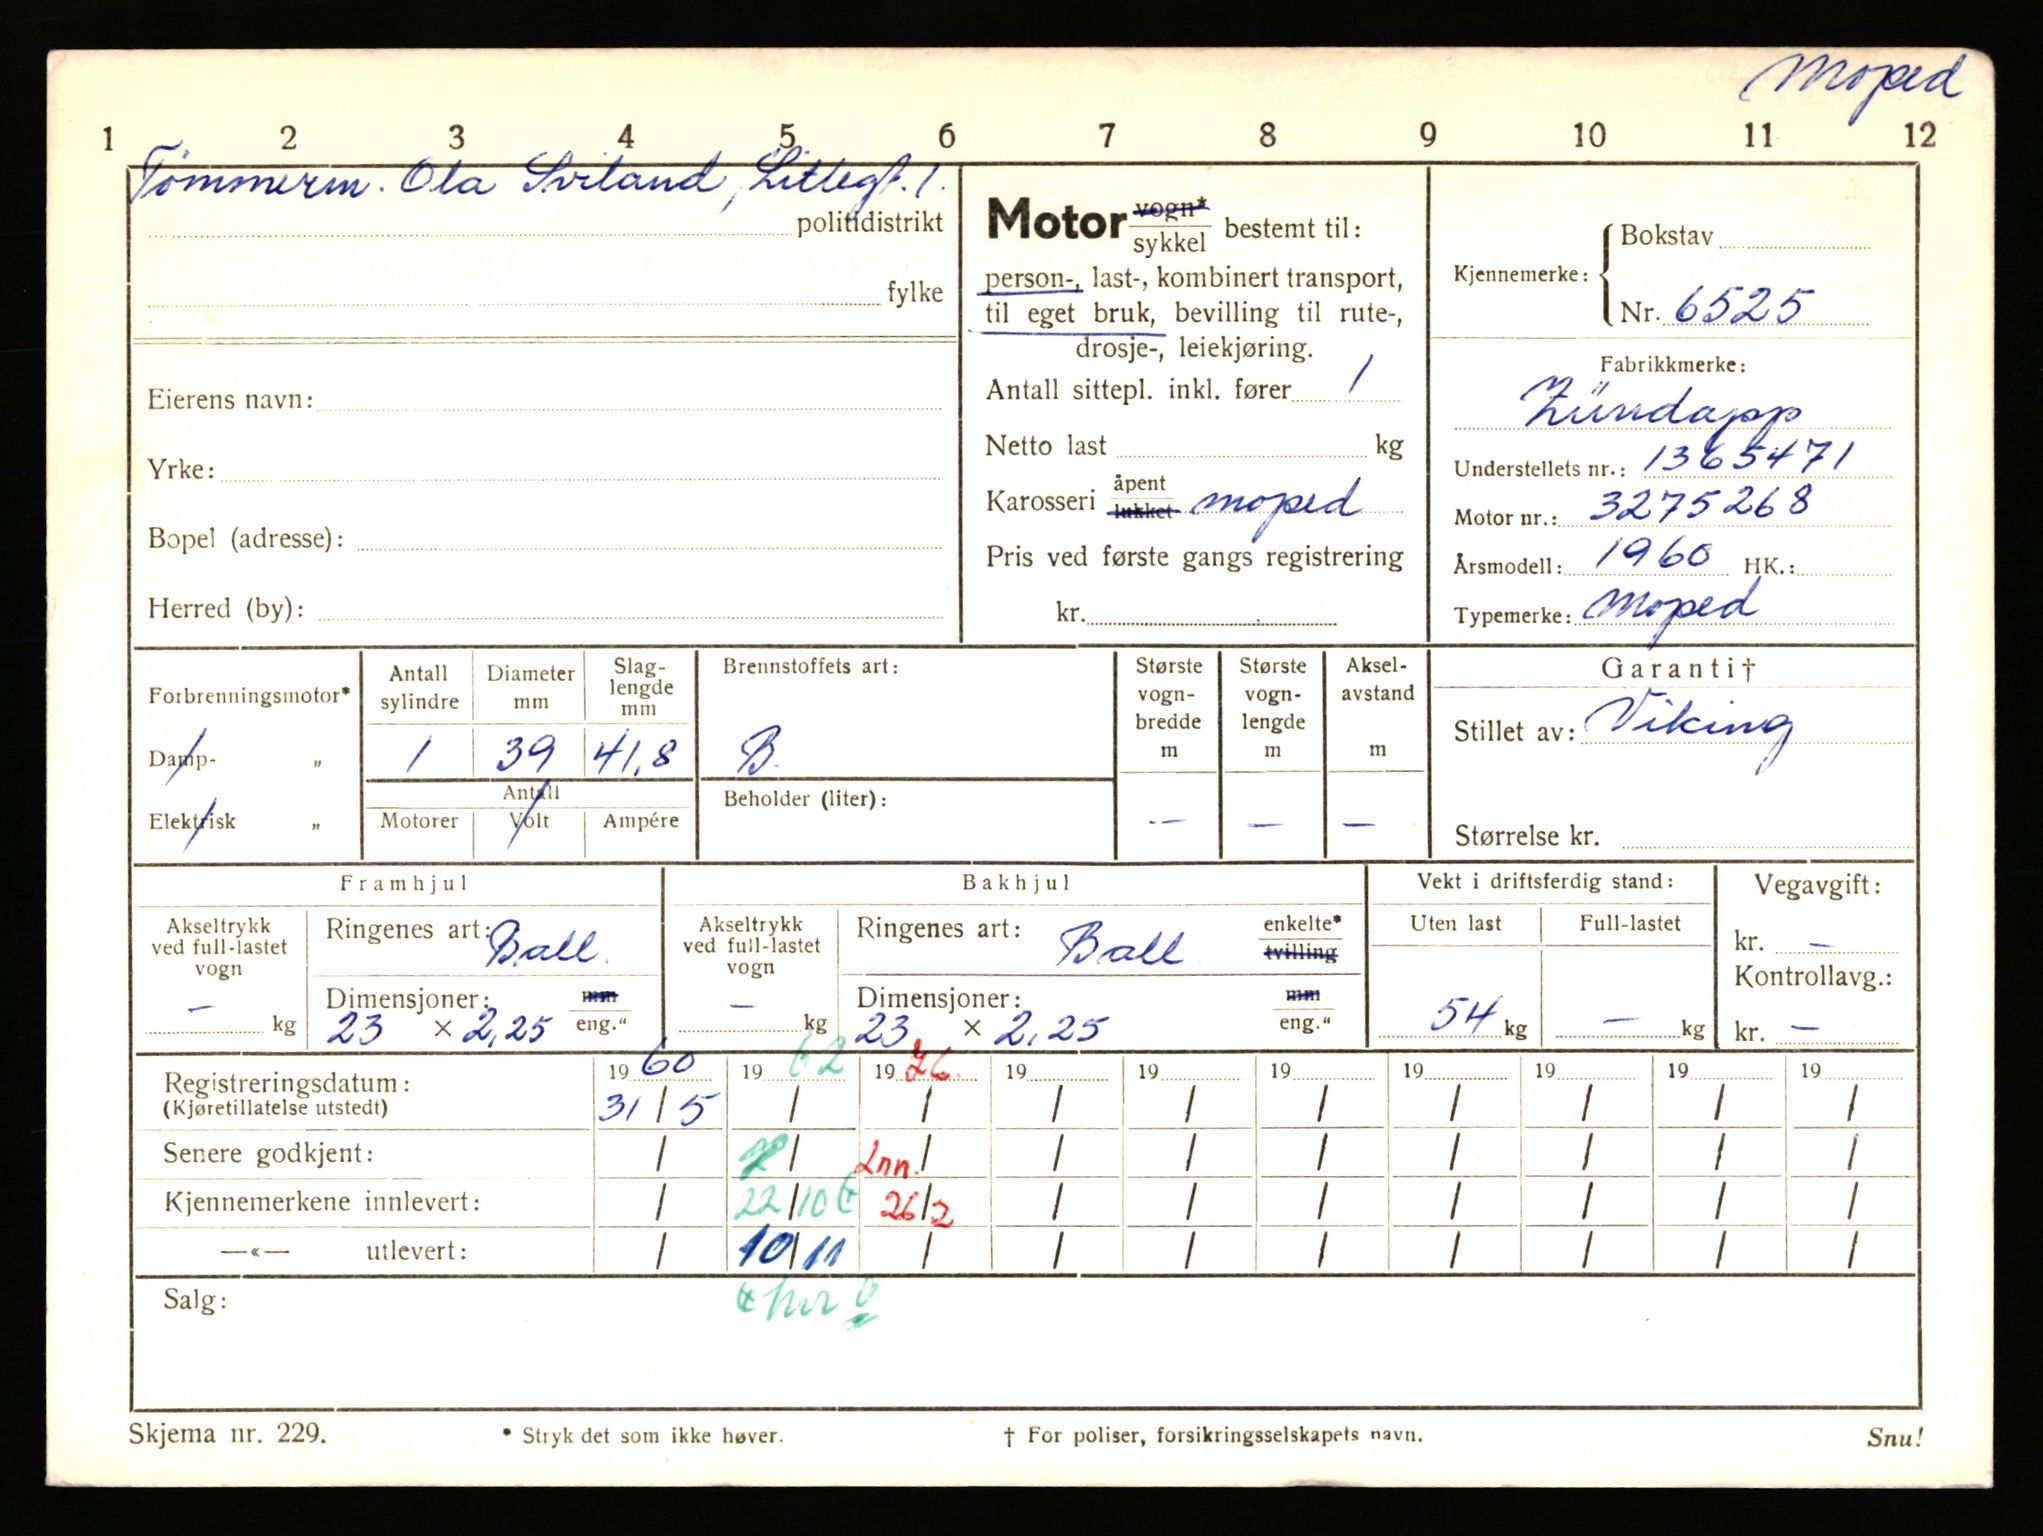 Moped
1 2 3 4 5 6 7 8 9 10 11 12
Tømmerm. Ola Sviland, Littlegt. 1.
politidistrikt
fylke
Eierens navn:
Yrke:
Bopel (adresse):
Herred (by):
Motor vogn* sykkel bestemt til:
person-, last-, kombinert transport,
til eget bruk, bevilling til rute-,
drosje-, leiekjøring.
Antall sittepl. inkl. fører 1
Netto last kg
Karosseri åpent lukket moped
Pris ved første gangs registrering
kr.
Kjennemerke: Bokstav
Nr. 6525
Fabrikkmerke:
Zündapp
Understellets nr.: 1365471
Motor nr.: 3275268
Årsmodell: 1960 HK.:
Typemerke: Moped
Forbrenningsmotor*
Damp- „
Elektrisk „
Antall sylindre Diameter mm Slag-lengde mm
1 39 41,8
Antall
Motorer Volt Ampére
Brennstoffets art:
B.
Beholder (liter):
Største vogn-bredde m Største vogn-lengde m Aksel-avstand m
— — —
Garanti†
Stillet av: Viking
Størrelse kr.
Framhjul
Akseltrykk ved full-lastet vogn
— kg
Ringenes art: Ball.
Dimensjoner: mm
23 × 2,25 eng."
Bakhjul
Akseltrykk ved full-lastet vogn
— kg
Ringenes art: Ball enkelte* tvilling
Dimensjoner: mm
23 × 2,25 eng."
Vekt i driftsferdig stand:
Uten last Full-lastet
54 kg — kg
Vegavgift:
kr. —
Kontrollavg.:
kr. —
19 60 19 62 19 76. 19 19 19 19 19 19 19
Registreringsdatum: 31/5 / / / / / / / / /
(Kjøretillatelse utstedt)
Senere godkjent: / / Inn. / / / / / / / /
Kjennemerkene innlevert: / 22/10 26/2 / / / / / / /
—«— utlevert: / 10/11 / / / / / / / /
Salg:
Skjema nr. 229.
* Stryk det som ikke høver.
† For poliser, forsikringsselskapets navn.
Snu!